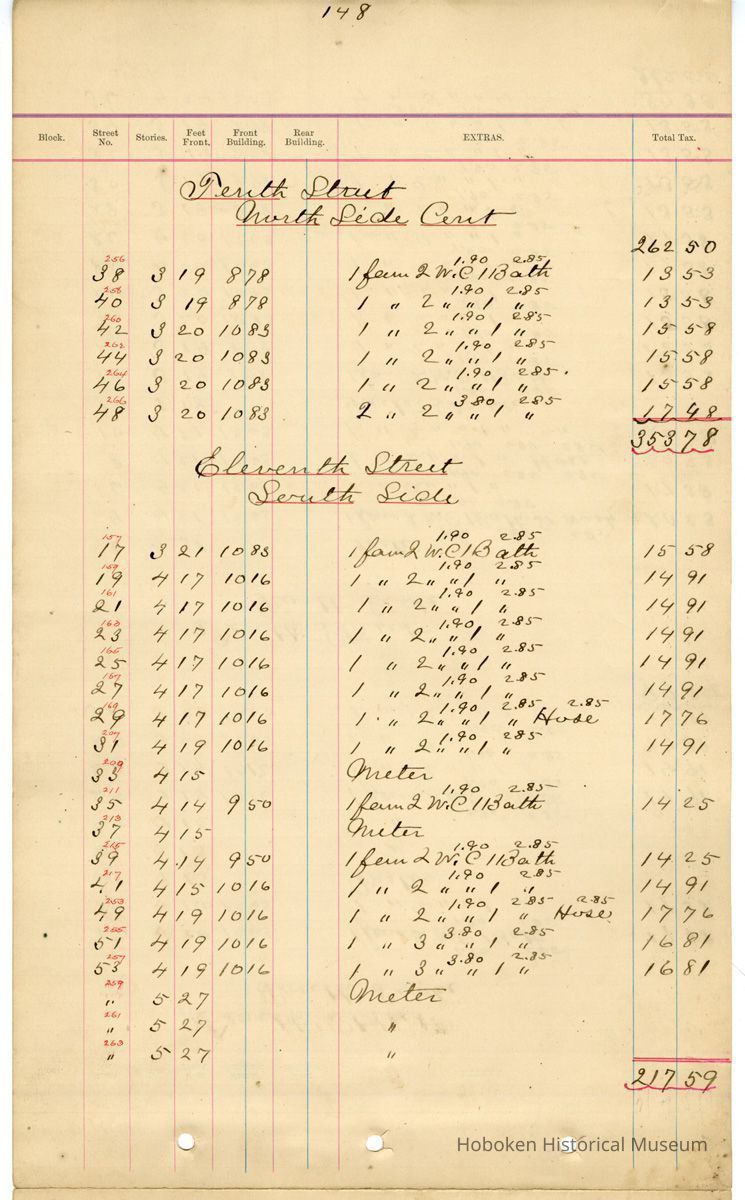 148
Block. Street No. Stories. Feet Front. Front Building. Rear Building. EXTRAS. Total Tax.
Tenth Street
North Side Cont
262 50
256 1.90 2.85
38 3 19 8 78 1 fam 2 W.C 1 Bath 13 53
258 1.90 2.85
40 3 19 8 78 1 " 2 " " 1 " 13 53
260 1.90 2.85
42 3 20 10 83 1 " 2 " " 1 " 15 58
262 1.90 2.85
44 3 20 10 83 1 " 2 " " 1 " 15 58
264 1.90 2.85.
46 3 20 10 83 1 " 2 " " 1 " 15 58
266 3.80 2.85
48 3 20 10 83 2 " 2 " " 1 " 17 48
353 78
Eleventh Street
South Side
157 1.90 2.85
17 3 21 10 83 1 fam 2 W.C 1 Bath 15 58
159 1.90 2.85
19 4 17 10 16 1 " 2 " " 1 " 14 91
161 1.90 2.85
21 4 17 10 16 1 " 2 " " 1 " 14 91
163 1.90 2.85
23 4 17 10 16 1 " 2 " " 1 " 14 91
165 1.90 2.85
25 4 17 10 16 1 " 2 " " 1 " 14 91
167 1.90 2.85
27 4 17 10 16 1 " 2 " " 1 " 14 91
169 1.90 2.85 2.85
29 4 17 10 16 1 " 2 " " 1 " Hose 17 76
207 1.90 2.85
31 4 19 10 16 1 " 2 " " 1 " 14 91
209
33 4 15 Meter
211 1.90 2.85
35 4 14 9 50 1 fam 2 W.C 1 Bath 14 25
213
37 4 15 Meter
215 1.90 2.85
39 4 14 9 50 1 fam 2 W.C 1 Bath 14 25
217 1.90 2.85
41 4 15 10 16 1 " 2 " " 1 " 14 91
253 1.90 2.85 2.85
49 4 19 10 16 1 " 2 " " 1 " Hose 17 76
255 3.80 2.85
51 4 19 10 16 1 " 3 " " 1 " 16 81
257 3.80 2.85
53 4 19 10 16 1 " 3 " " 1 " 16 81
259
" 5 27 Meter
261
" 5 27 "
263
" 5 27 "
217 59
Hoboken Historical Museum